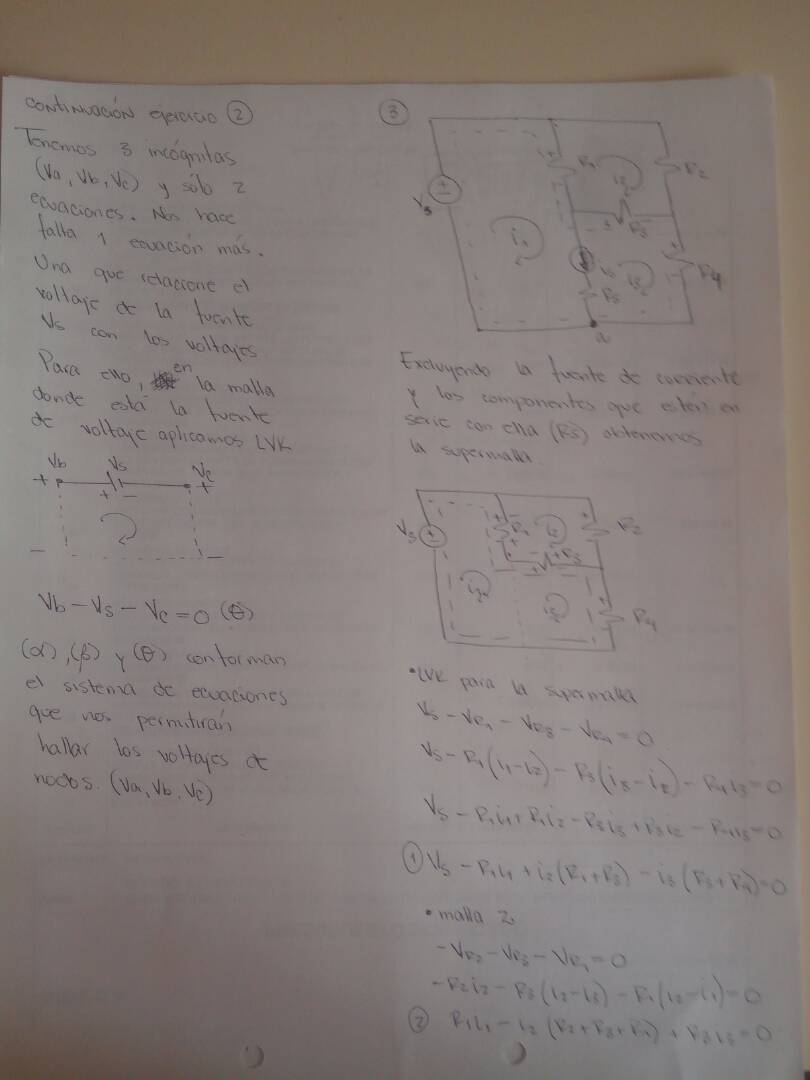 CONTINUACIÓN ejercicio ②
Tenemos 3 incógnitas
(Va, Vb, Vc) y sólo 2
ecuaciones. Nos hace
falta 1 ecuación más.
Una que relacione el
voltaje de la fuente
Vs con los voltajes
Para ello, en la malla
donde está la fuente
de voltaje aplicamos LVK
Vb Vs Vc
+ + - +
- -
Vb - Vs - Vc = 0 (θ)
(α), (β) y (θ) conforman
el sistema de ecuaciones
que nos permitirán
hallar los voltajes de
nodos. (Va, Vb, Vc)
③
R1 i2 R2
Vs ± R3
i1 is i3 R4
R5
a
Excluyendo la fuente de corriente
y los componentes que estén en
serie con ella (R5) obtenemos
la supermalla.
Vs ± R1 i2 R2
R3
R4
• LVK para la supermalla
Vs - VR1 - VR3 - VR4 = 0
Vs - R1(i1-i2) - R3(i3-i2) - R4i3 = 0
Vs - R1i1 + R1i2 - R3i3 + R3i2 - R4i3 = 0
① Vs - R1i1 + i2(R1+R3) - i3(R3+R4) = 0
• malla 2
-VR2 - VR3 - VR1 = 0
-R2i2 - R3(i2-i3) - R1(i2-i1) = 0
② R1i1 - i2(R2+R3+R1) + R3i3 = 0